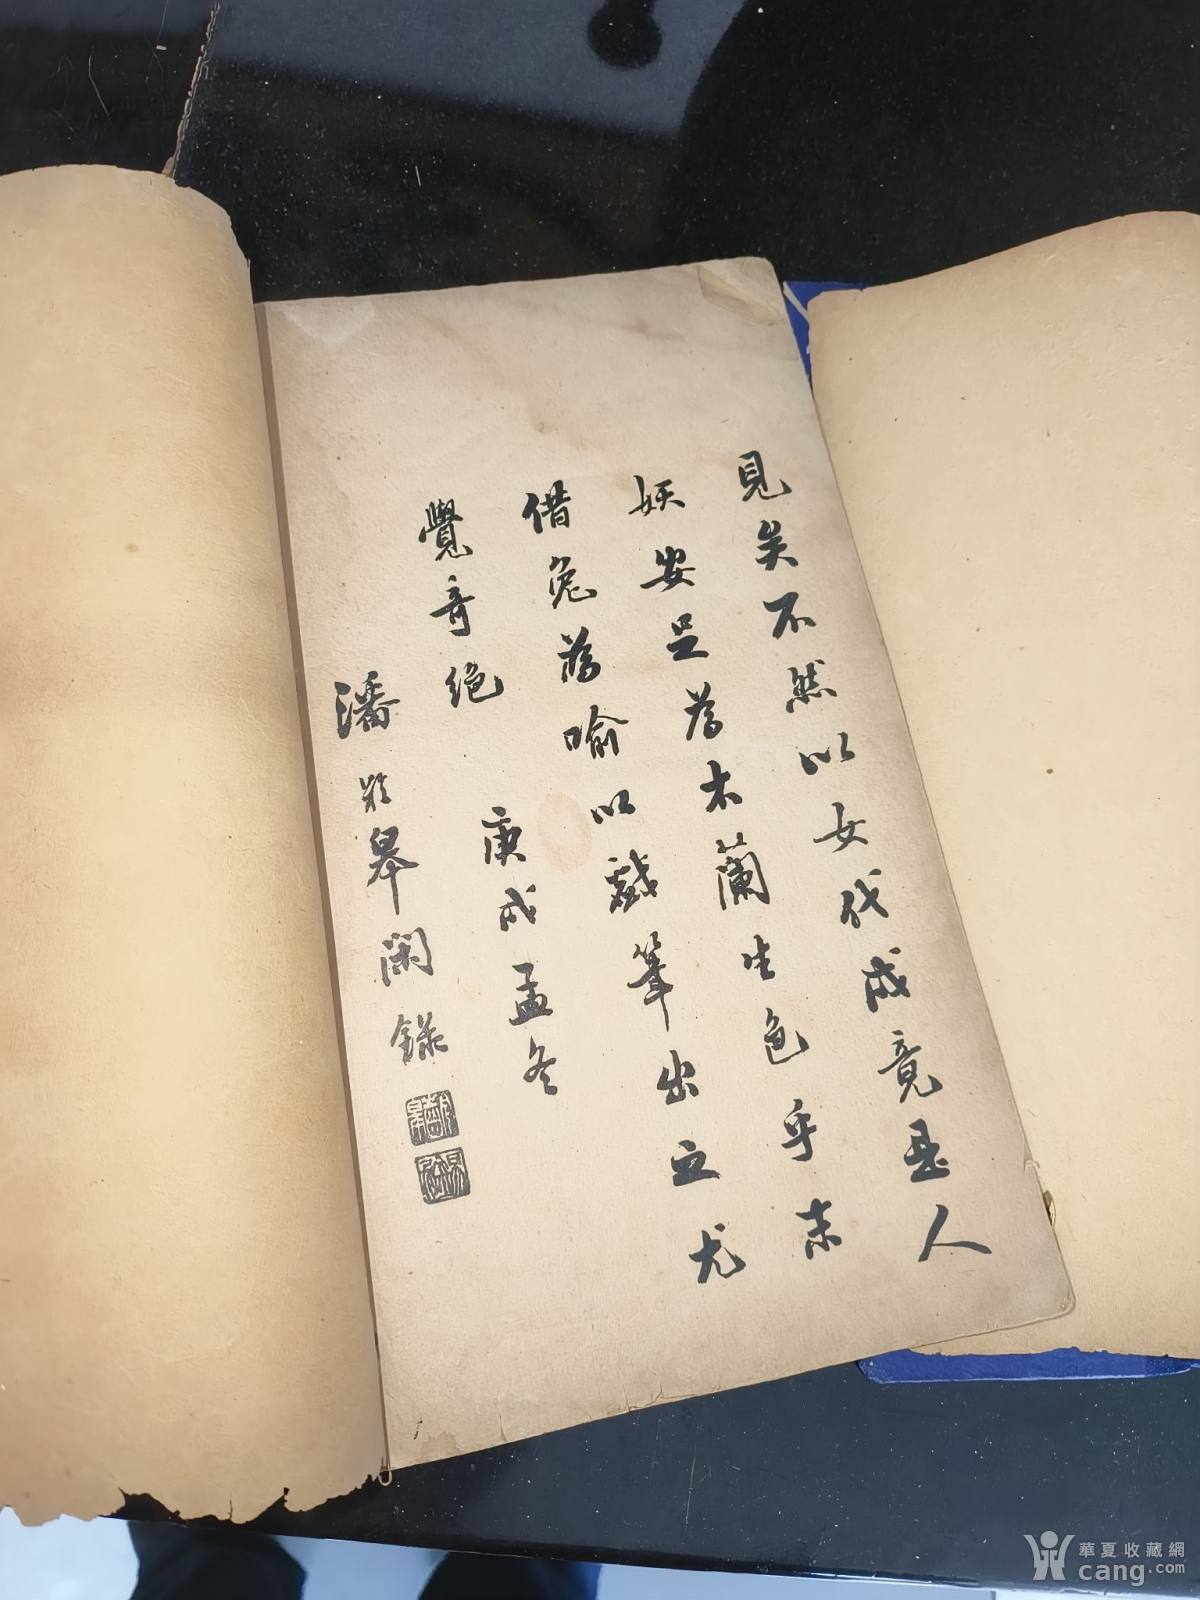 見矣不然以女代戍竟是人
妖安足為木蘭生色乎末
借兔為喻以戲筆出之尤
覺奇絕 庚戌孟冬
潘齡皋閑錄
華夏收藏網
cang.com